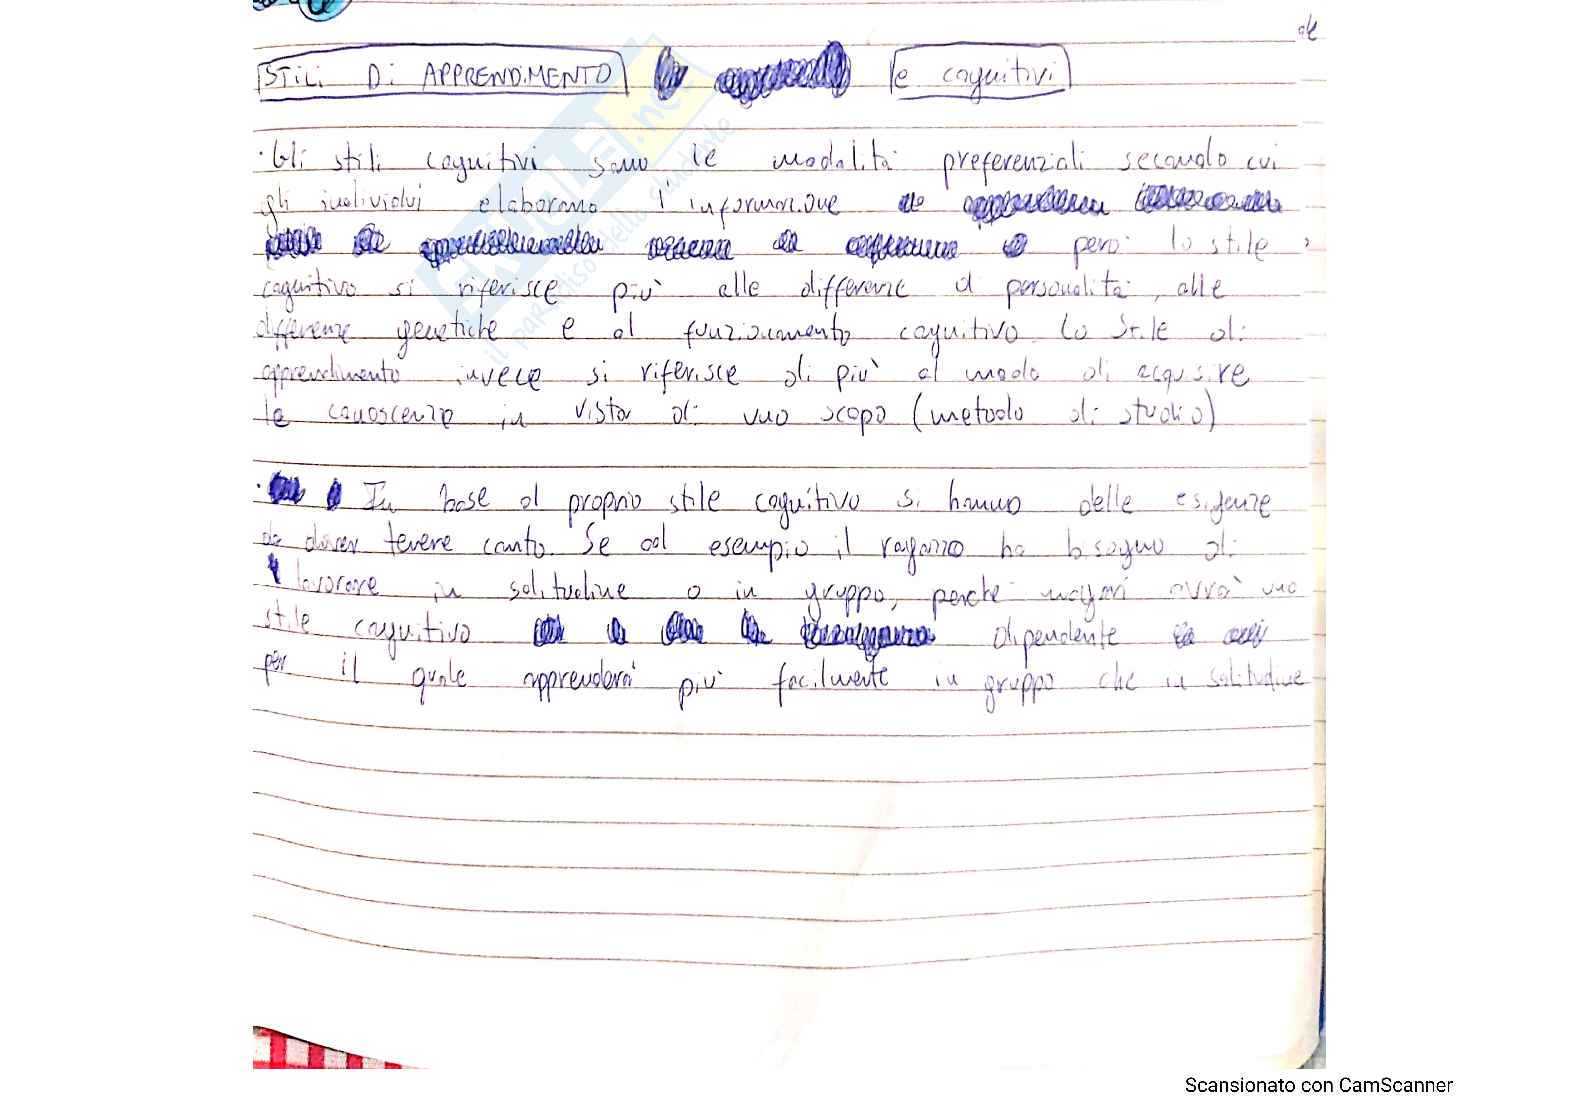 STILI DI APPRENDIMENTO e cognitivi
· Gli stili cognitivi sono le modalità preferenziali secondo cui
gli individui elaborano l'informazione
però lo stile
cognitivo si riferisce più alle differenze d personalità, alle
differenze genetiche e al funzionamento cognitivo lo stile di
apprendimento invece si riferisce di più al modo di acquisire
le conoscenze in vista di uno scopo (metodo di studio)
· In base al proprio stile cognitivo si hanno delle esigenze
da dover tenere conto. Se ad esempio il ragazzo ha bisogno di
lavorare in solitudine o in gruppo, perché magari avrà uno
stile cognitivo dipendente
per il quale apprenderà più facilmente in gruppo che in solitudine
il paradiso dello studente
Scansionato con CamScanner